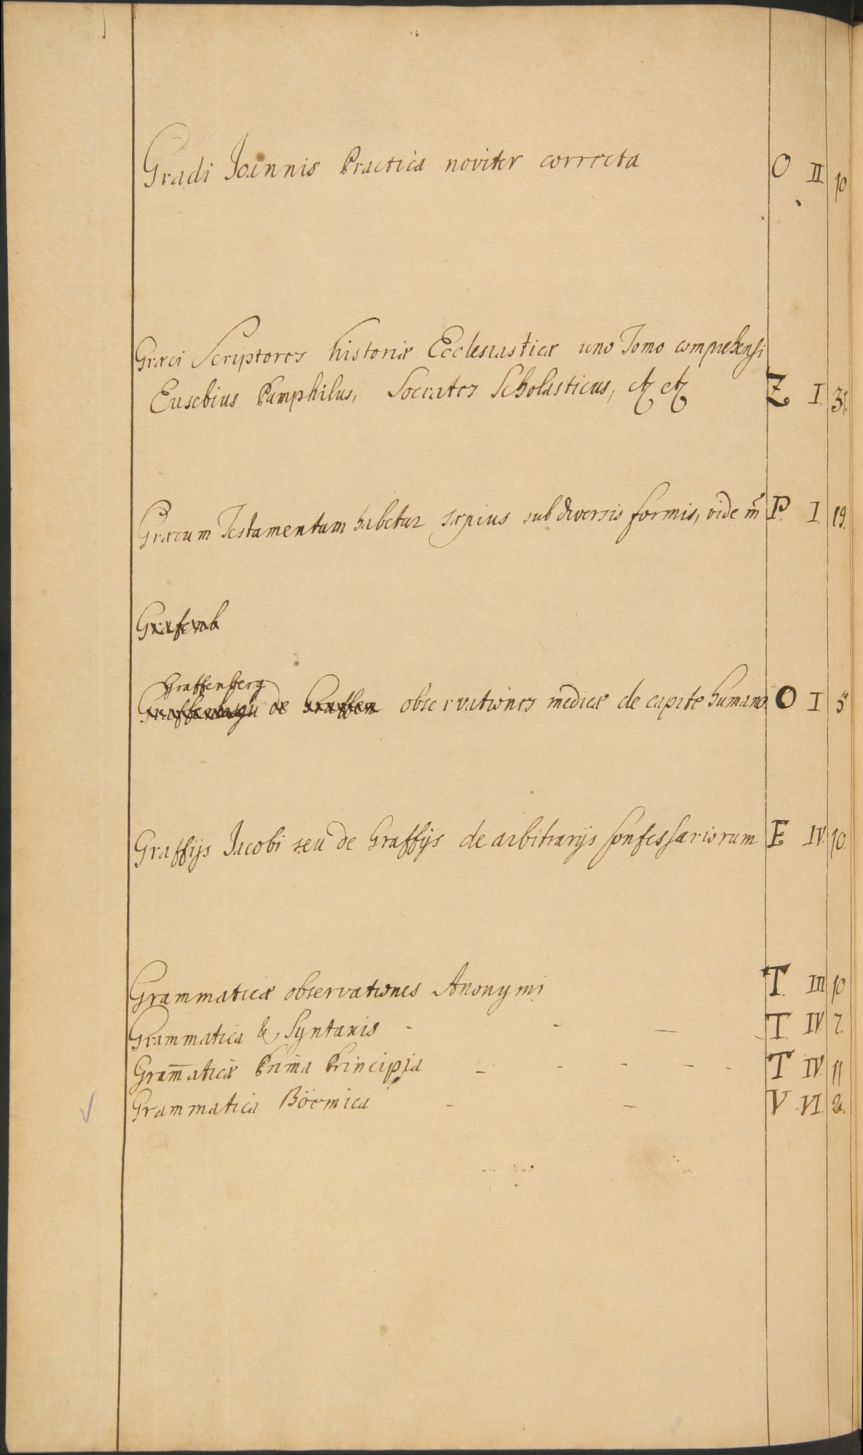 Gradi Joannis Practica noviter correcta O II 10
Græci Scriptores historiæ Ecclesiasticæ uno Tomo comprehensi
Eusebius Pamphilus, Socrates Scholasticus, etc etc Z I. 31.
Græcum Testamentum habetur sæpius sub diversis formis, vide P. I. 19.
Graffenberg
de observationes medicæ de capite humano O I 5
Graffijs Jacobi seu de Graffijs de arbitrarijs Confessariorum E IV. 10.
Grammaticæ observationes Anonymi T. III 10
Grammatica & Syntaxis - - — T. IV. 7.
Gram̅aticæ Prima Principia - - - - - T IV. 11
Grammatica Böemica - — V VI. 2.